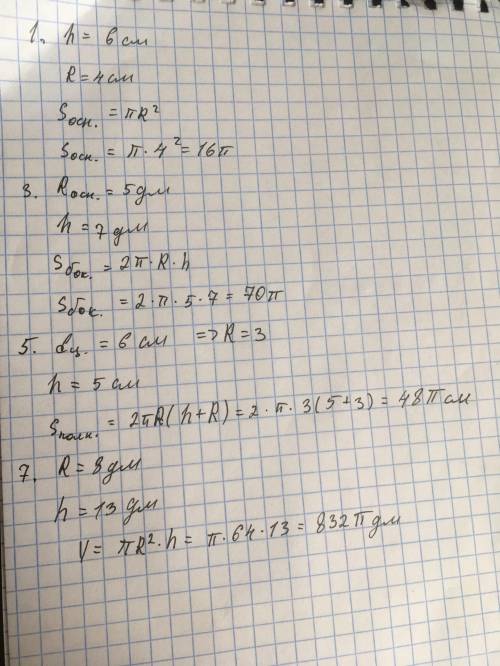 1. h = 6 см
R = 4 см
Sосн. = πR²
Sосн. = π · 4² = 16π
3. Rосн. = 5 дм
h = 7 дм
Sбок. = 2π · R · h
Sбок. = 2 · π · 5 · 7 = 70π
5. dц. = 6 см => R = 3
h = 5 см
Sполн. = 2πR(h+R) = 2 · π · 3(5+3) = 48π см
7. R = 8 дм
h = 13 дм
V = πR² · h = π · 64 · 13 = 832π дм